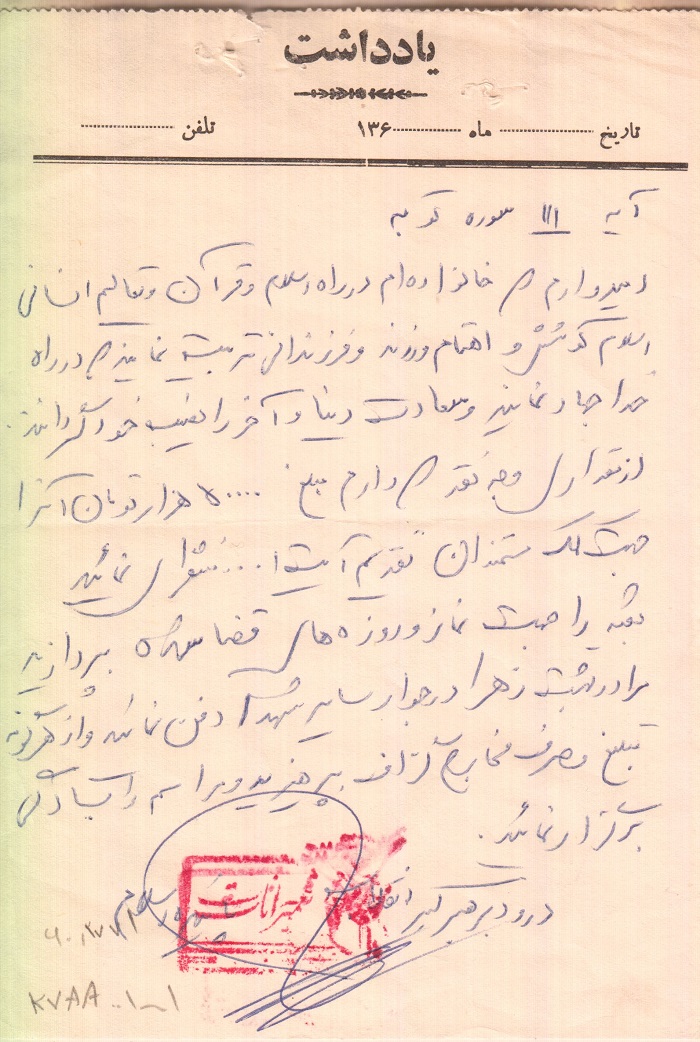 یادداشت
تاریخ ........ ماه ........ ۱۳۶ تلفن ........
آیه ۱۱۱ سوره توبه
امیدوارم که خانواده‌ام در راه اسلام و قرآن و تعالیم انسانی
اسلام کوشش و اهتمام ورزند و فرزندانی تربیت نمایند که در راه
خدا جهاد نمایند و سعادت دنیا و آخر را نصیب خود گردانند.
از مقداری وجه نقد که دارم مبلغ ۵۰۰۰۰ هزار تومان آنرا
جهت کمک مستمندان تقدیم آیت ا... نمائید
بقیه را جهت نماز و روزه های قضا بپردازید
مرا در بهشت زهرا در جوار سایر شهدا دفن نمائید و از هرگونه
تبلیغ و صرف مخارج گزاف بپرهیزید و مراسم را بسادگی
برگزار نمائید.
درود بر رهبر کبیر انقلاب
KVAA